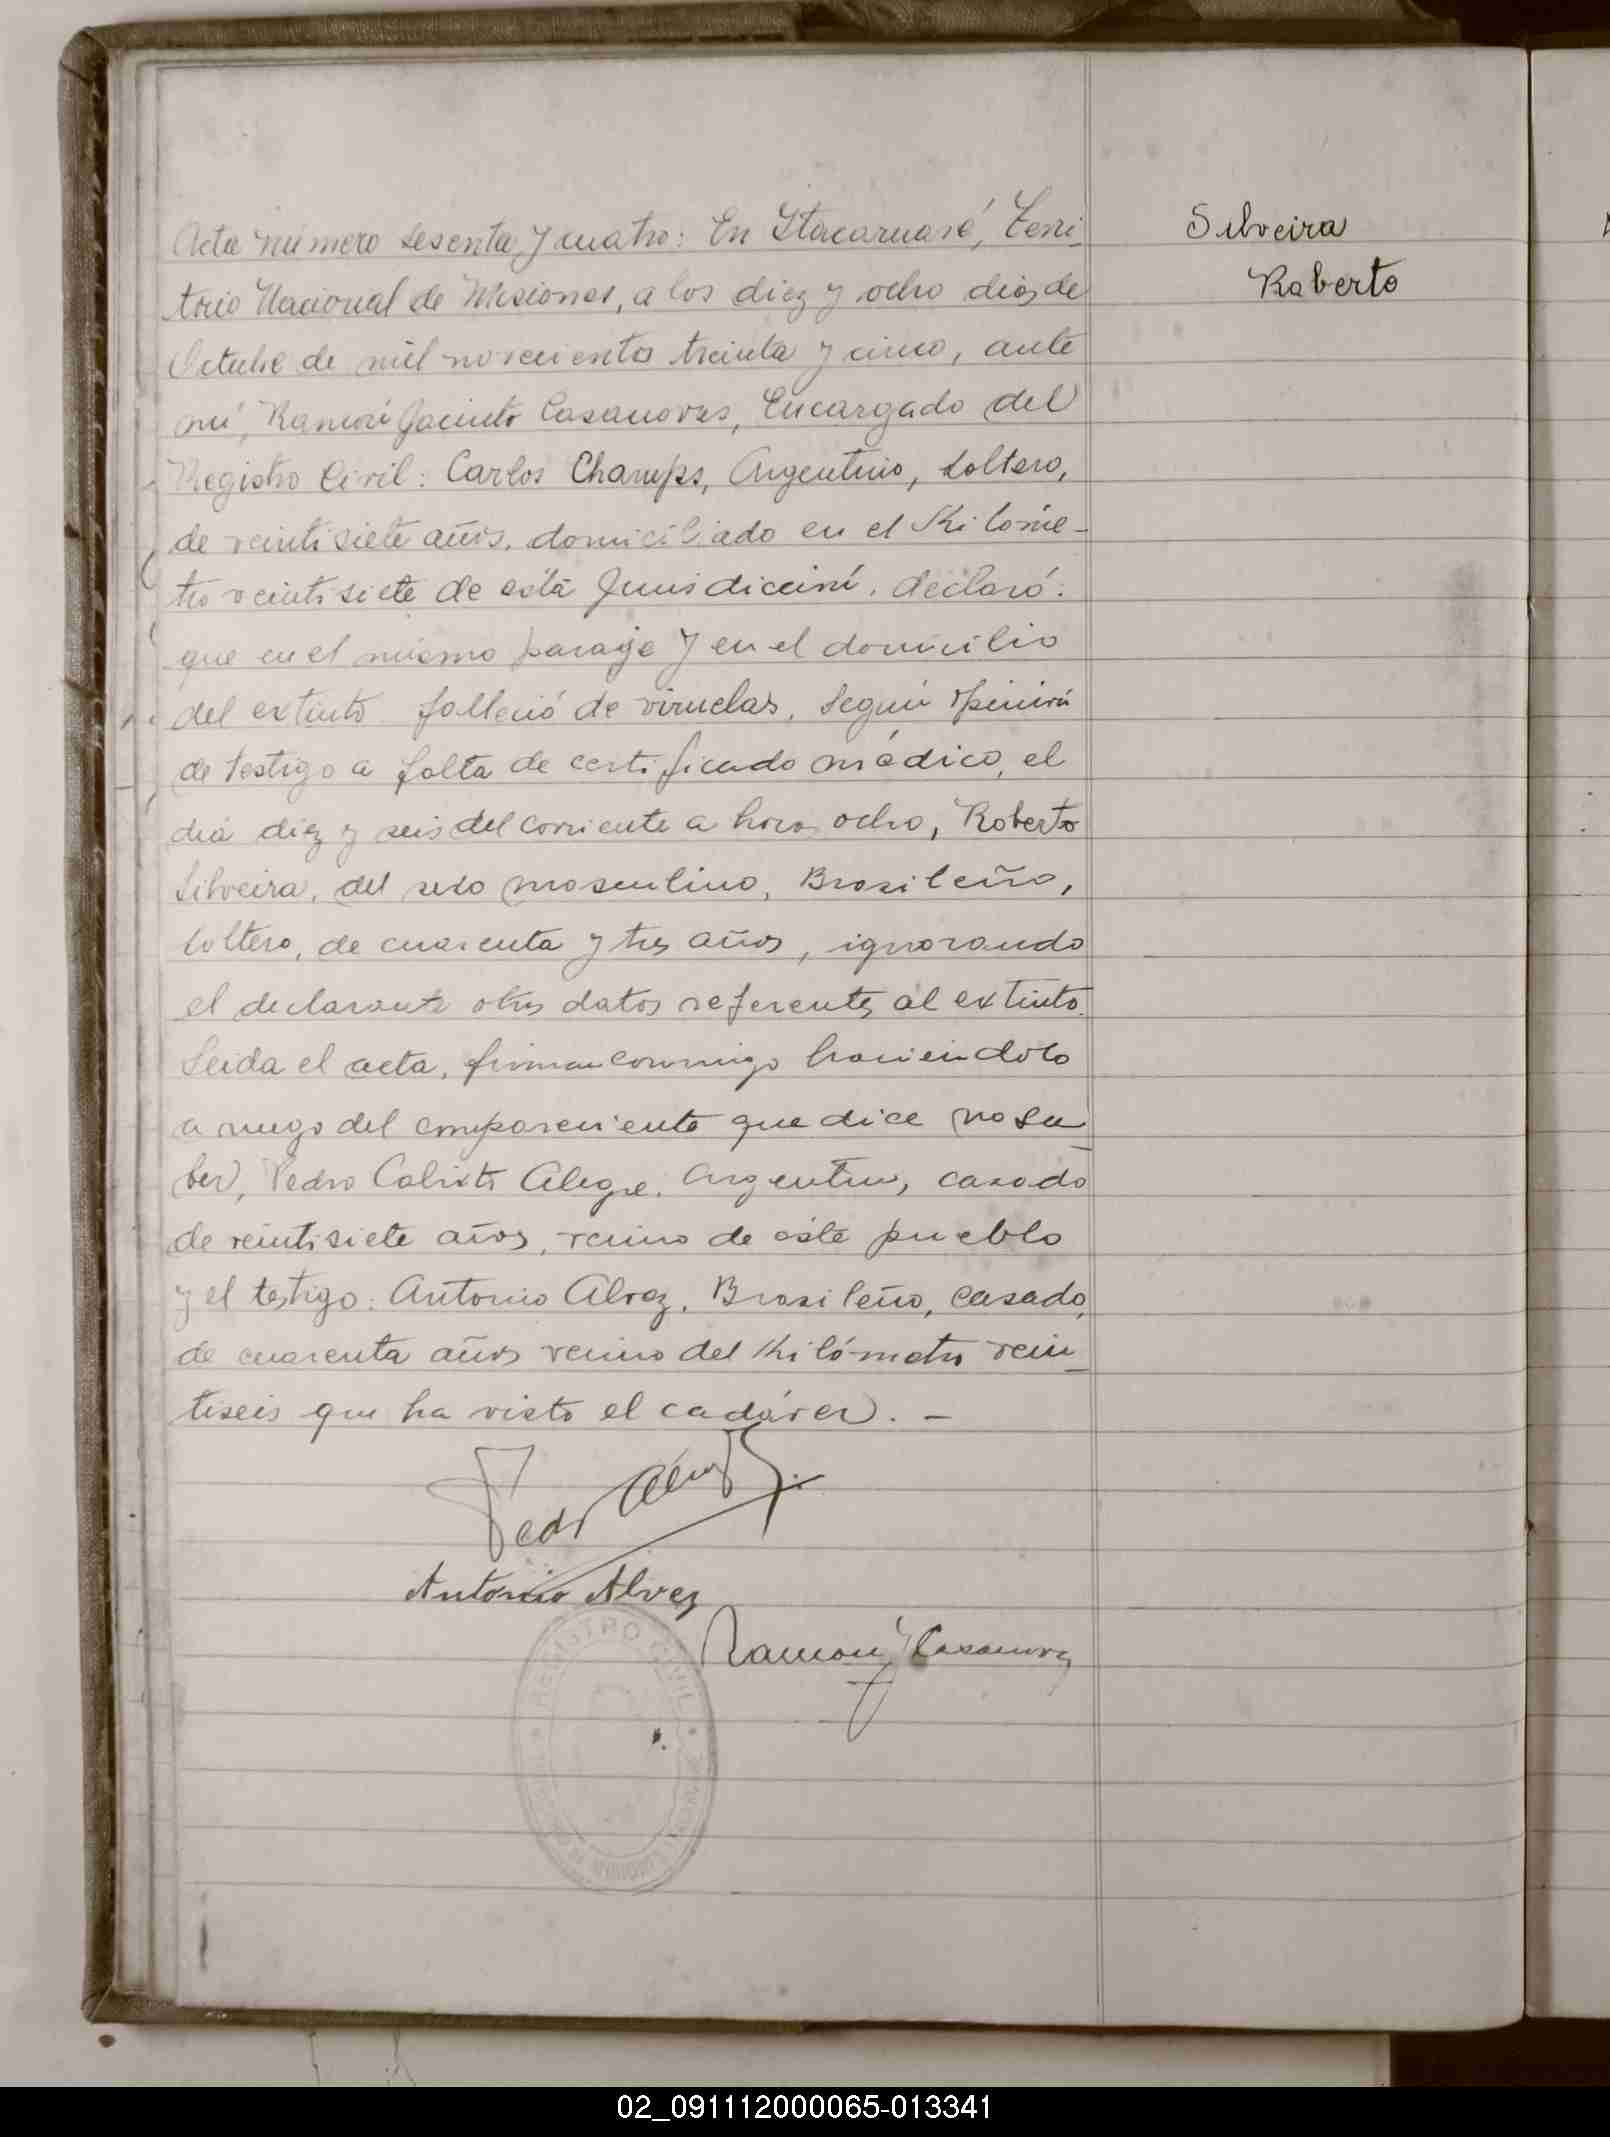 Acta número sesenta y cuatro: En Itacaruaré, Terri-
torio Nacional de Misiones, a los diez y ocho dias de
Octubre de mil novecientos treinta y cinco, ante
mí, Ramón Jacinto Casanovas, Encargado del
Registro Civil: Carlos Champs, Argentino, soltero,
de veintisiete años, domiciliado en el Kilóme-
tro veintisiete de ésta Jurisdicción, declaró:
que en el mismo paraje y en el domicilio
del extinto falleció de viruelas, según opinión
de testigo a falta de certificado médico, el
día diez y seis del corriente a horas ocho, Roberto
Silveira, del sexo masculino, Brasileño,
soltero, de cuarenta y tres años, ignorando
el declarante otros datos referentes al extinto.
Leida el acta, firman conmigo haciendolo
a ruego del compareciente que dice no sa-
ber, Pedro Calixto Alegre, Argentino, casado
de veintisiete años, vecino de éste pueblo
y el testigo: Antonio Alvez, Brasileño, casado,
de cuarenta años vecino del Kilómetro vein-
tiseis que ha visto el cadáver. -
Silveira
Roberto
Pedro
Antonio Alvez
Ramon J Casanovas
REGISTRO CIVIL
02_091112000065-013341